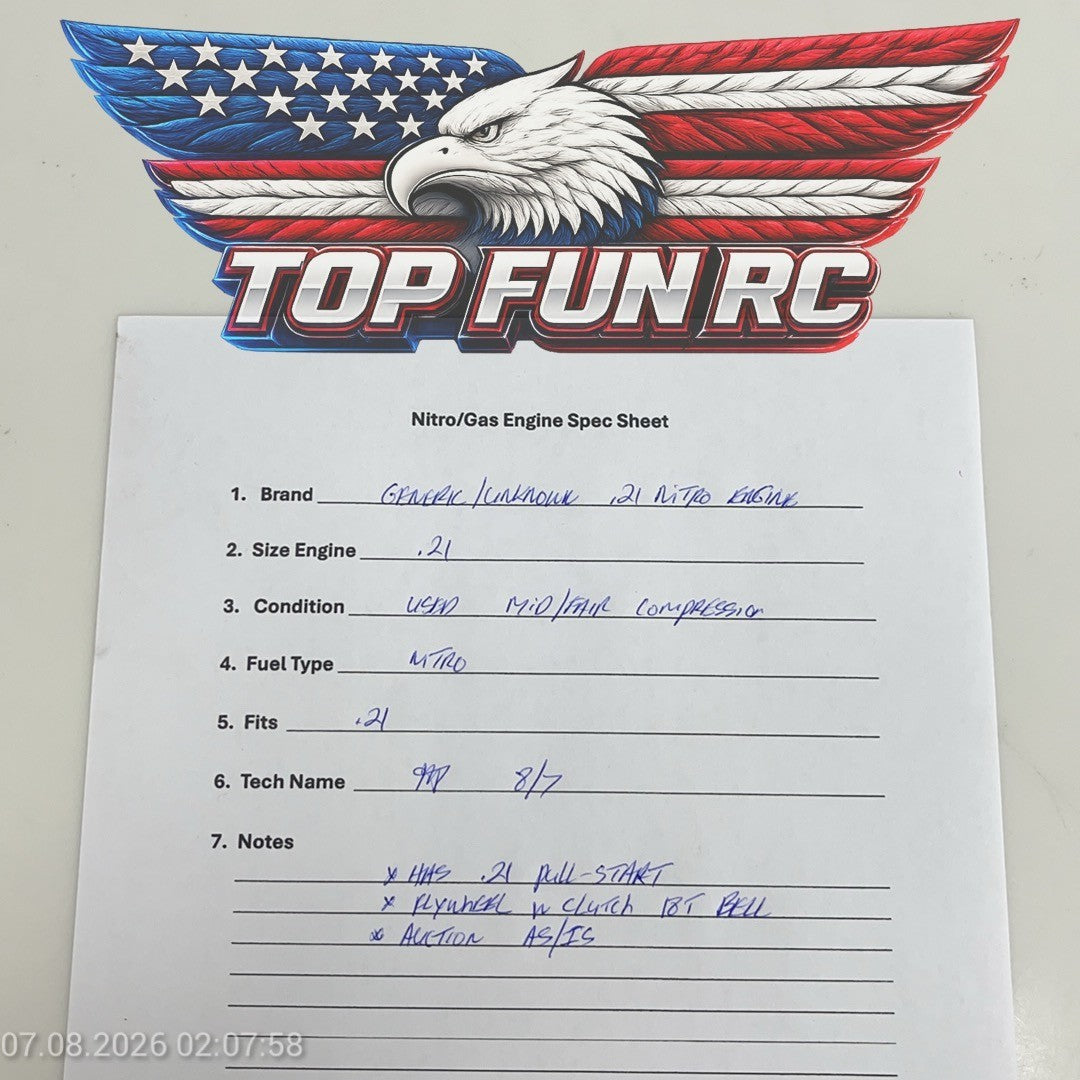 TOP FUN RC
Nitro/Gas Engine Spec Sheet
1. Brand GENERIC/UNKNOWN .21 NITRO ENGINE
2. Size Engine .21
3. Condition USED MID/FAIR COMPRESSION
4. Fuel Type NITRO
5. Fits .21
6. Tech Name 8/7
7. Notes
* HAS .21 PULL-START
* FLYWHEEL W CLUTCH 18T BELL
* AUCTION AS/IS
07.08.2026 02:07:58